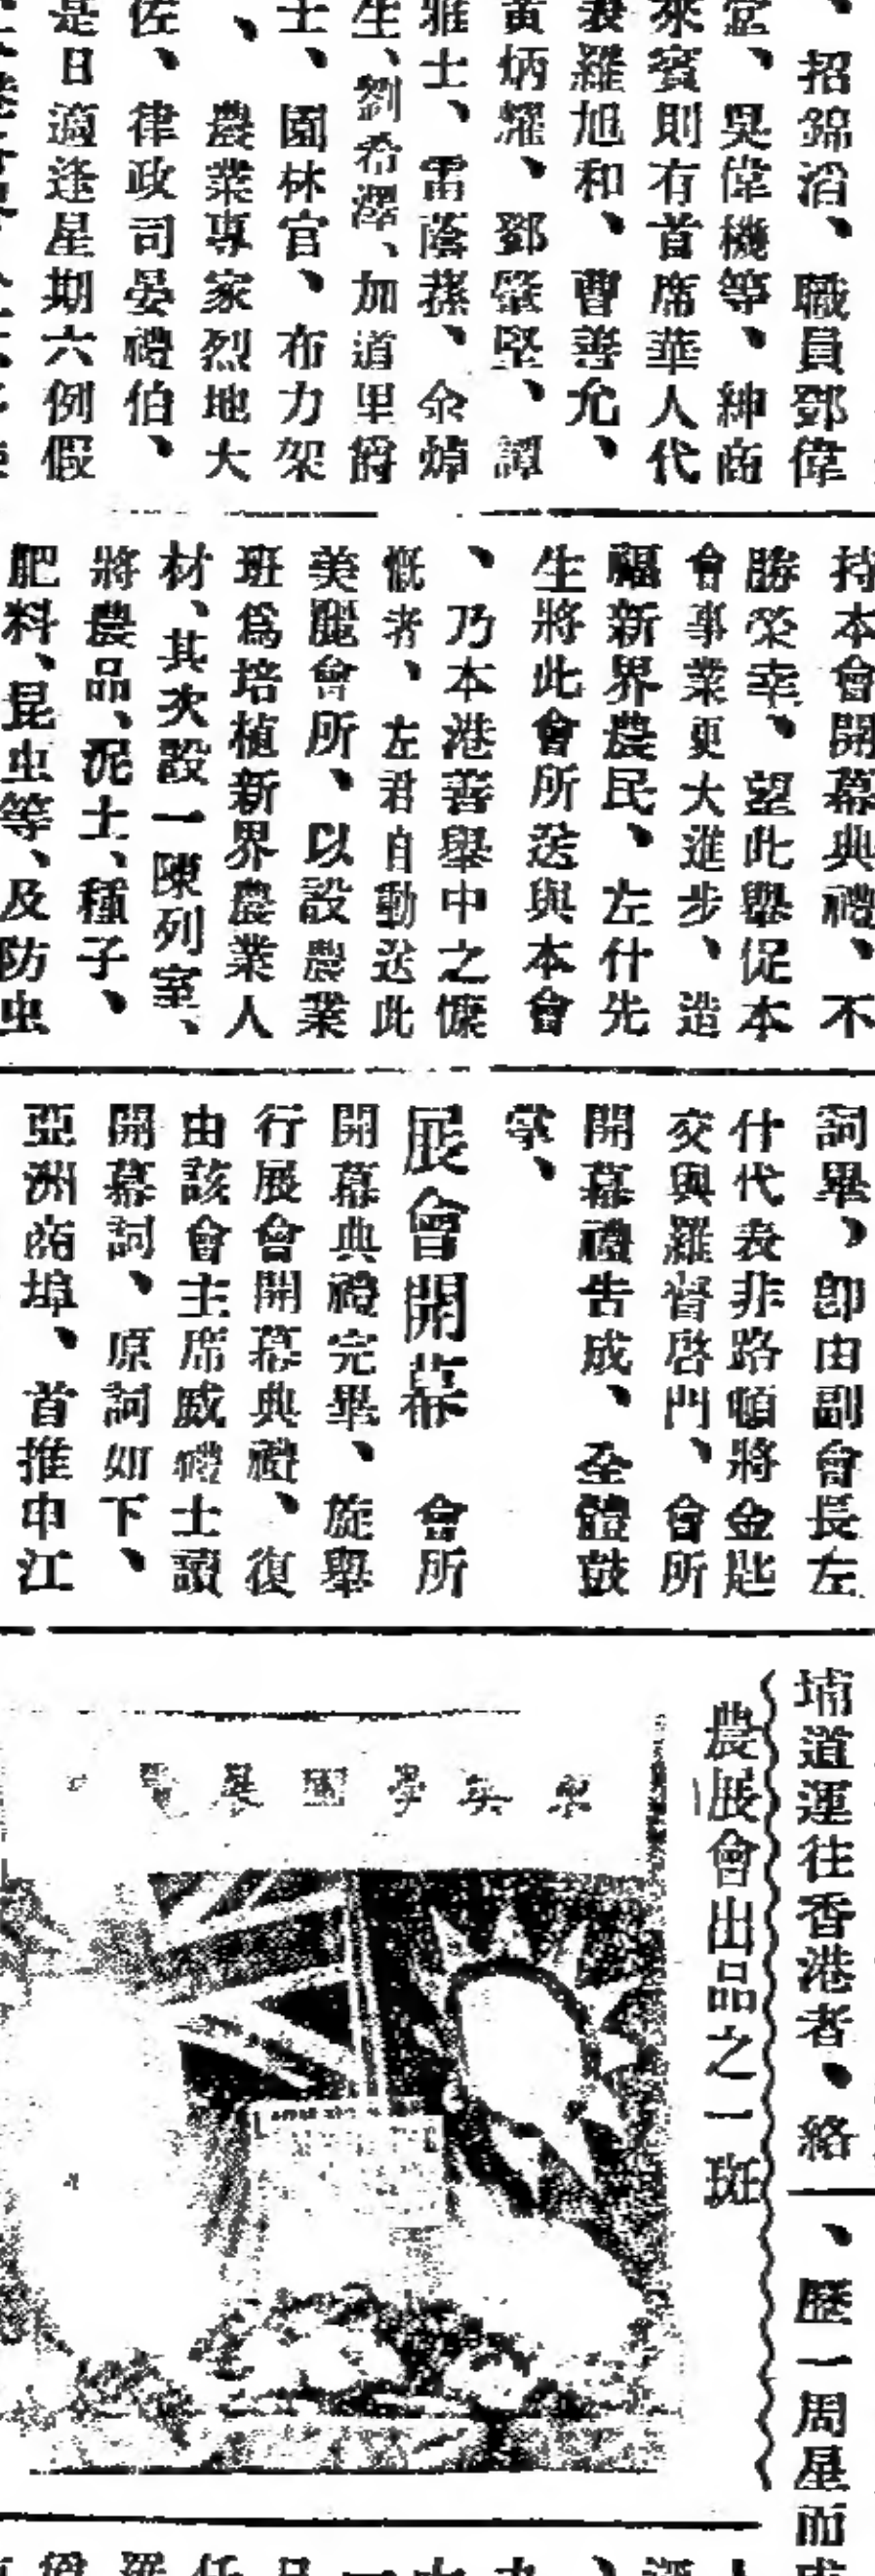 、招錦滔、職員鄧偉
堂、吳偉機等、紳商
來賓則有首席華人代
表羅旭和、曹善允、
黃炳耀、鄧肇堅、譚
雅士、雷蔭蓀、余焯
生、劉希澤、加道里爵
士、園林官、布力架
、農業專家烈地大
佐、律政司晏禮伯、
是日適逢星期六例假
持本會開幕典禮、不
勝榮幸、望此舉促本
會事業更大進步、造
福新界農民、左什先
生將此會所送與本會
、乃本港善舉中之慷
慨者、左君自動送此
美麗會所、以設農業
班爲培植新界農業人
材、其次設一陳列室、
將農品、泥土、種子、
肥料、昆虫等、及防虫
詞畢、卽由副會長左
什代表非路頓將金匙
交與羅督啓門、會所
開幕禮告成、全體鼓
掌、
展會開幕 會所
開幕典禮完畢、旋舉
行展會開幕典禮、復
由該會主席威禮士讀
開幕詞、原詞如下、
亞洲商埠、首推申江
埔道運往香港者、絡
、歷一周星而
農展會出品之一斑